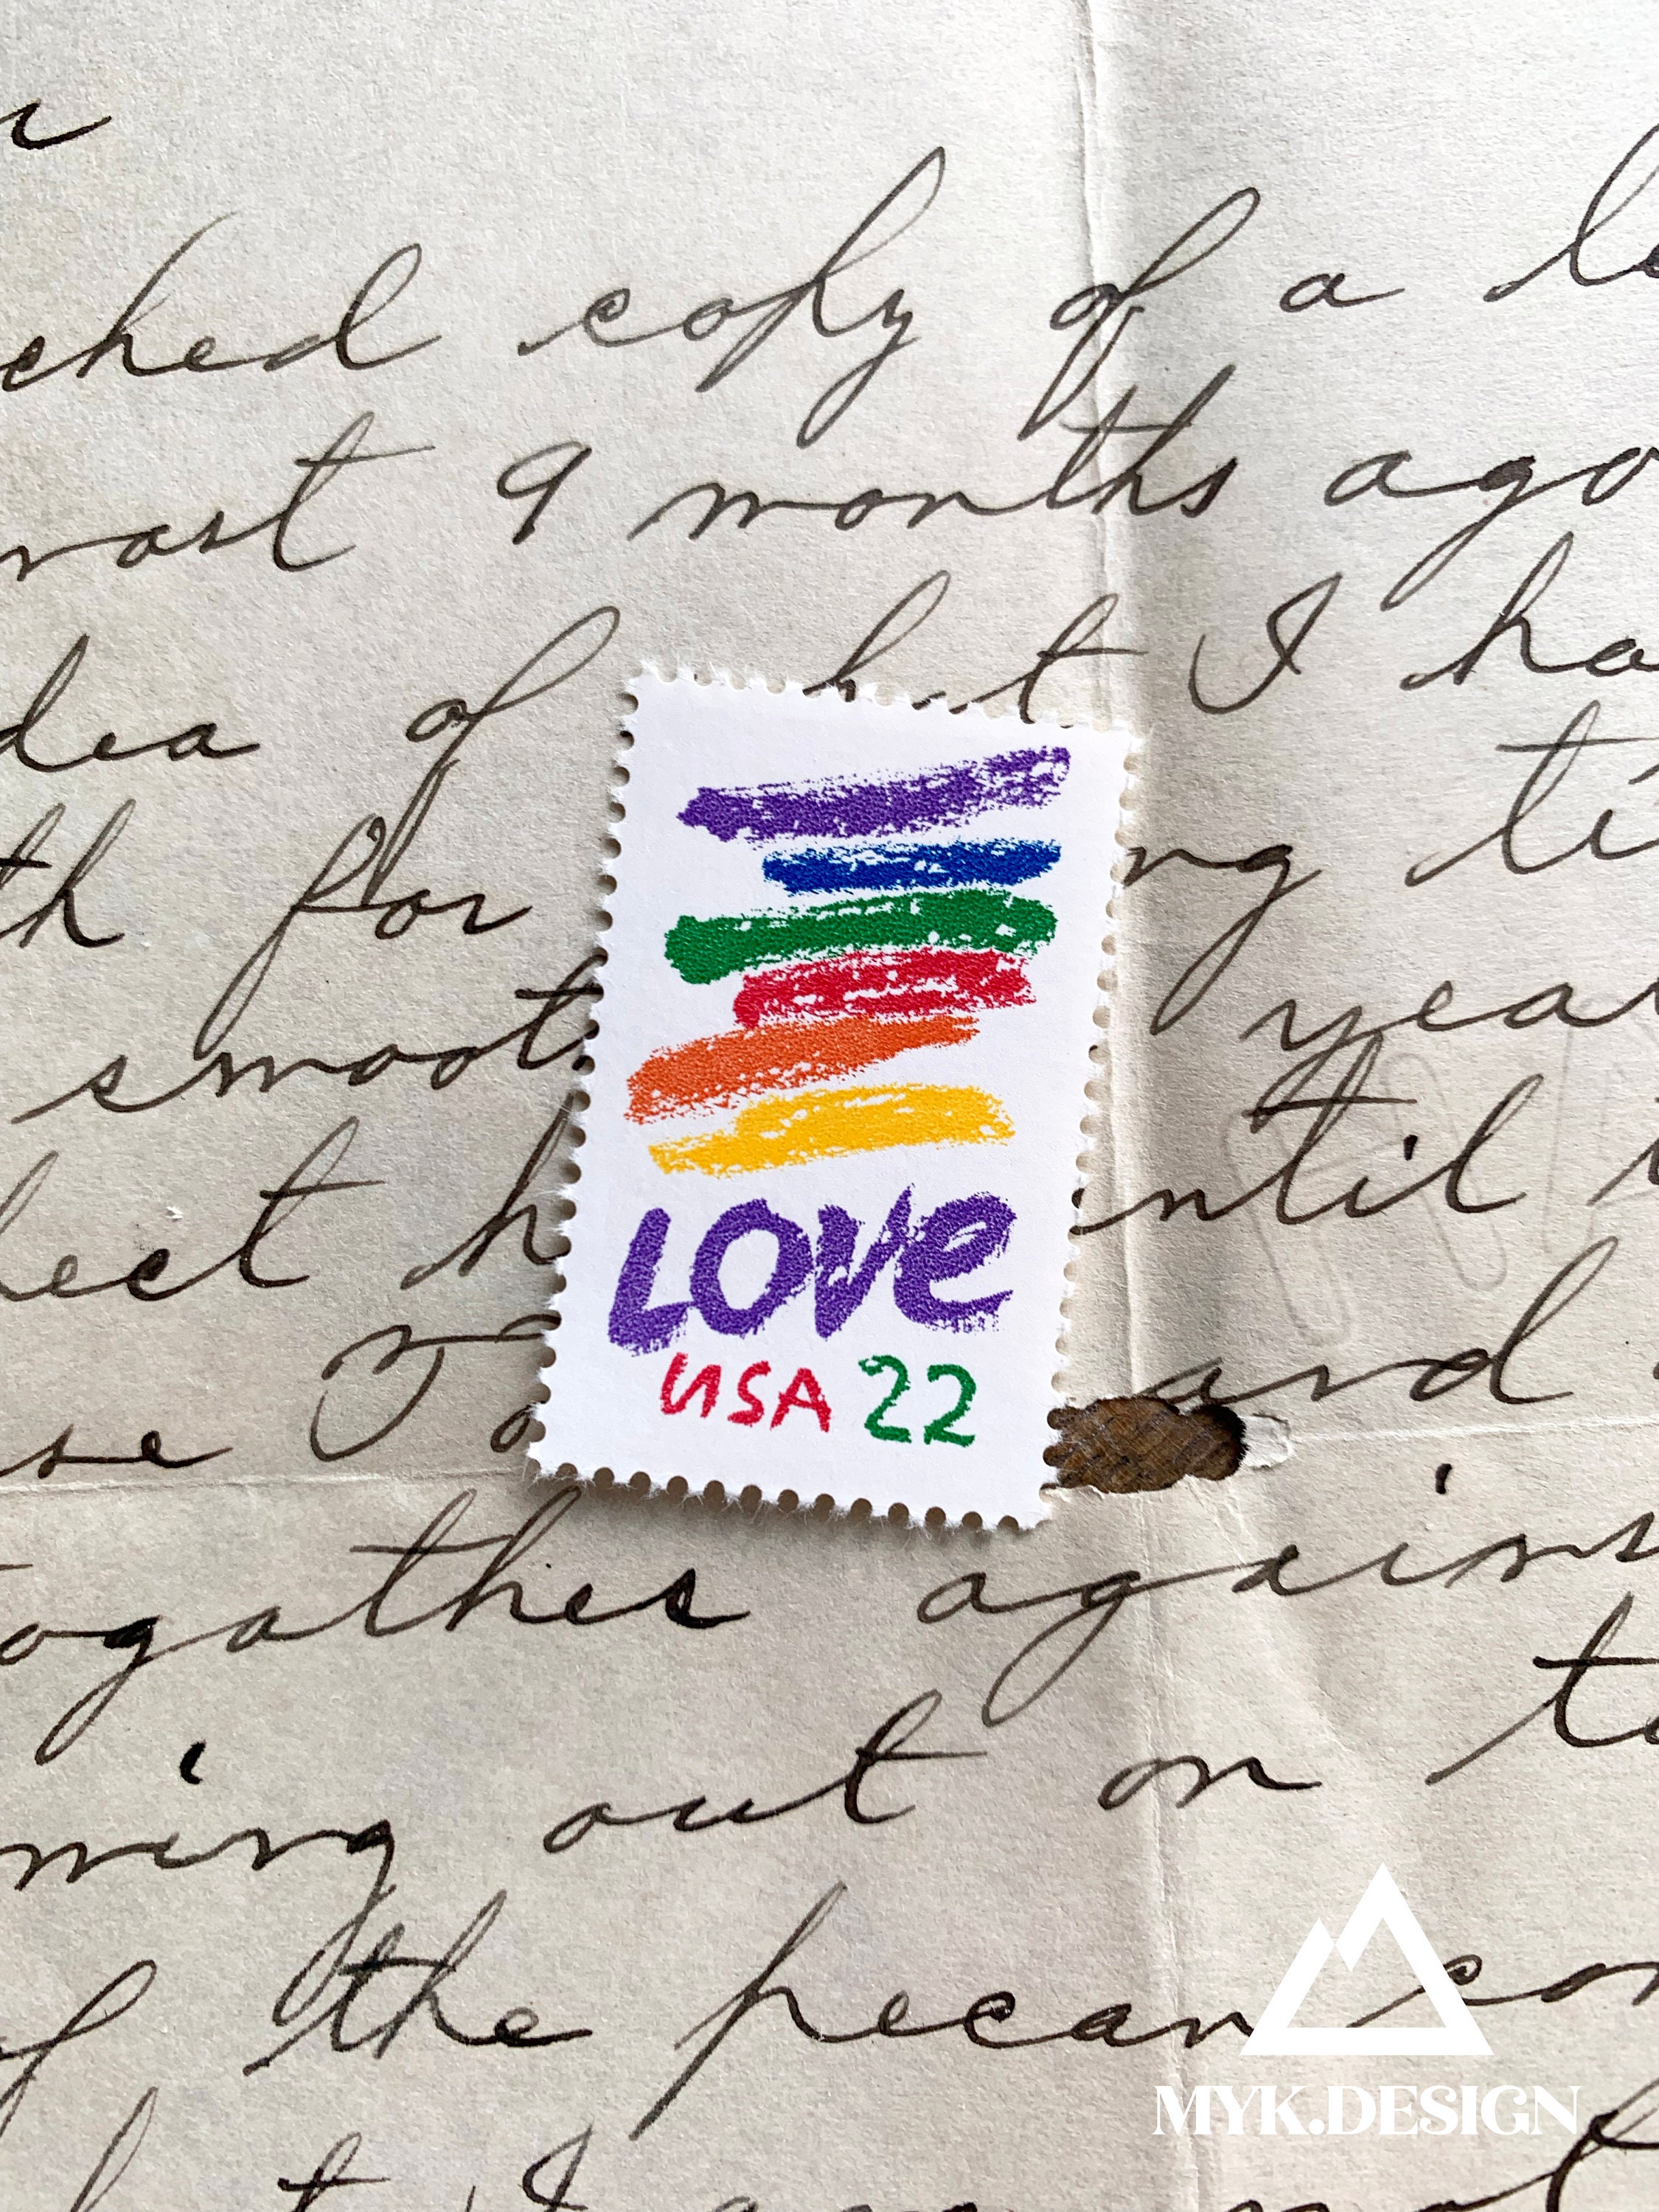 ched copy of a
most 9 months ago
dea of I ha
th for ng ti
smoot year
ect h until
se and
togather again
ming out on to
of the pecan con
LOVE
USA 22
MYK.DESIGN